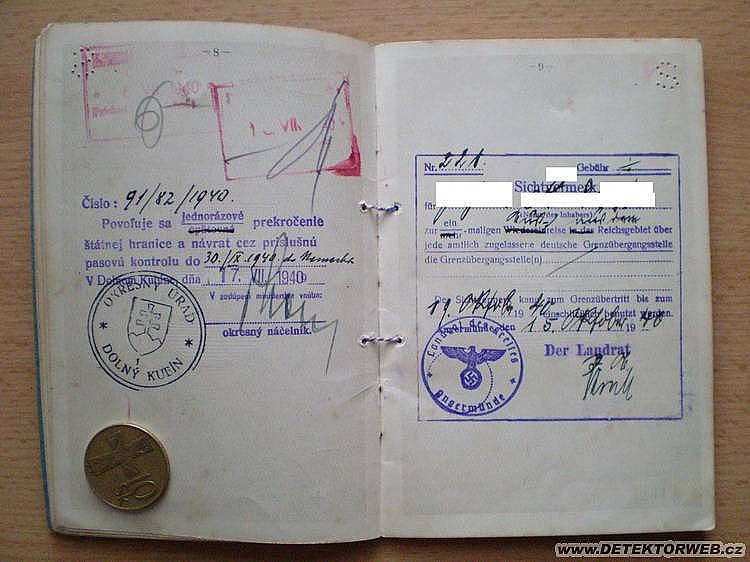 – 8 –
1940
1 VII. 40
Číslo : 91/82/1940.
Povoľuje sa jednorázové opätovné prekročenie
štátnej hranice a návrat cez príslušnú
pasovú kontrolu do 30./IX 1940. do Nemecka
V Dolnom Kubíne, dňa 17. VII. 1940
V zastúpení ministerstva vnútra:
okresný náčelník.
OKRESNÝ ÚRAD
DOLNÝ KUBÍN
1
10
– 9 –
Nr. 228 Gebühr
Sichtvermerk
für
(Name des Inhabers)
zur ein mehr -maligen Wiedereinreise in das Reichsgebiet über
jede amtlich zugelassene deutsche Grenzübergangsstelle
die Grenzübergangsstelle(n)
Der Sichtvermerk kann zum Grenzübertritt bis zum
19. Oktober 1940 einschließlich benutzt werden.
Angermünde, den 15. Oktober 1940
Der Landrat
Landrat des Kreises
Angermünde
www.DETEKTORWEB.cz